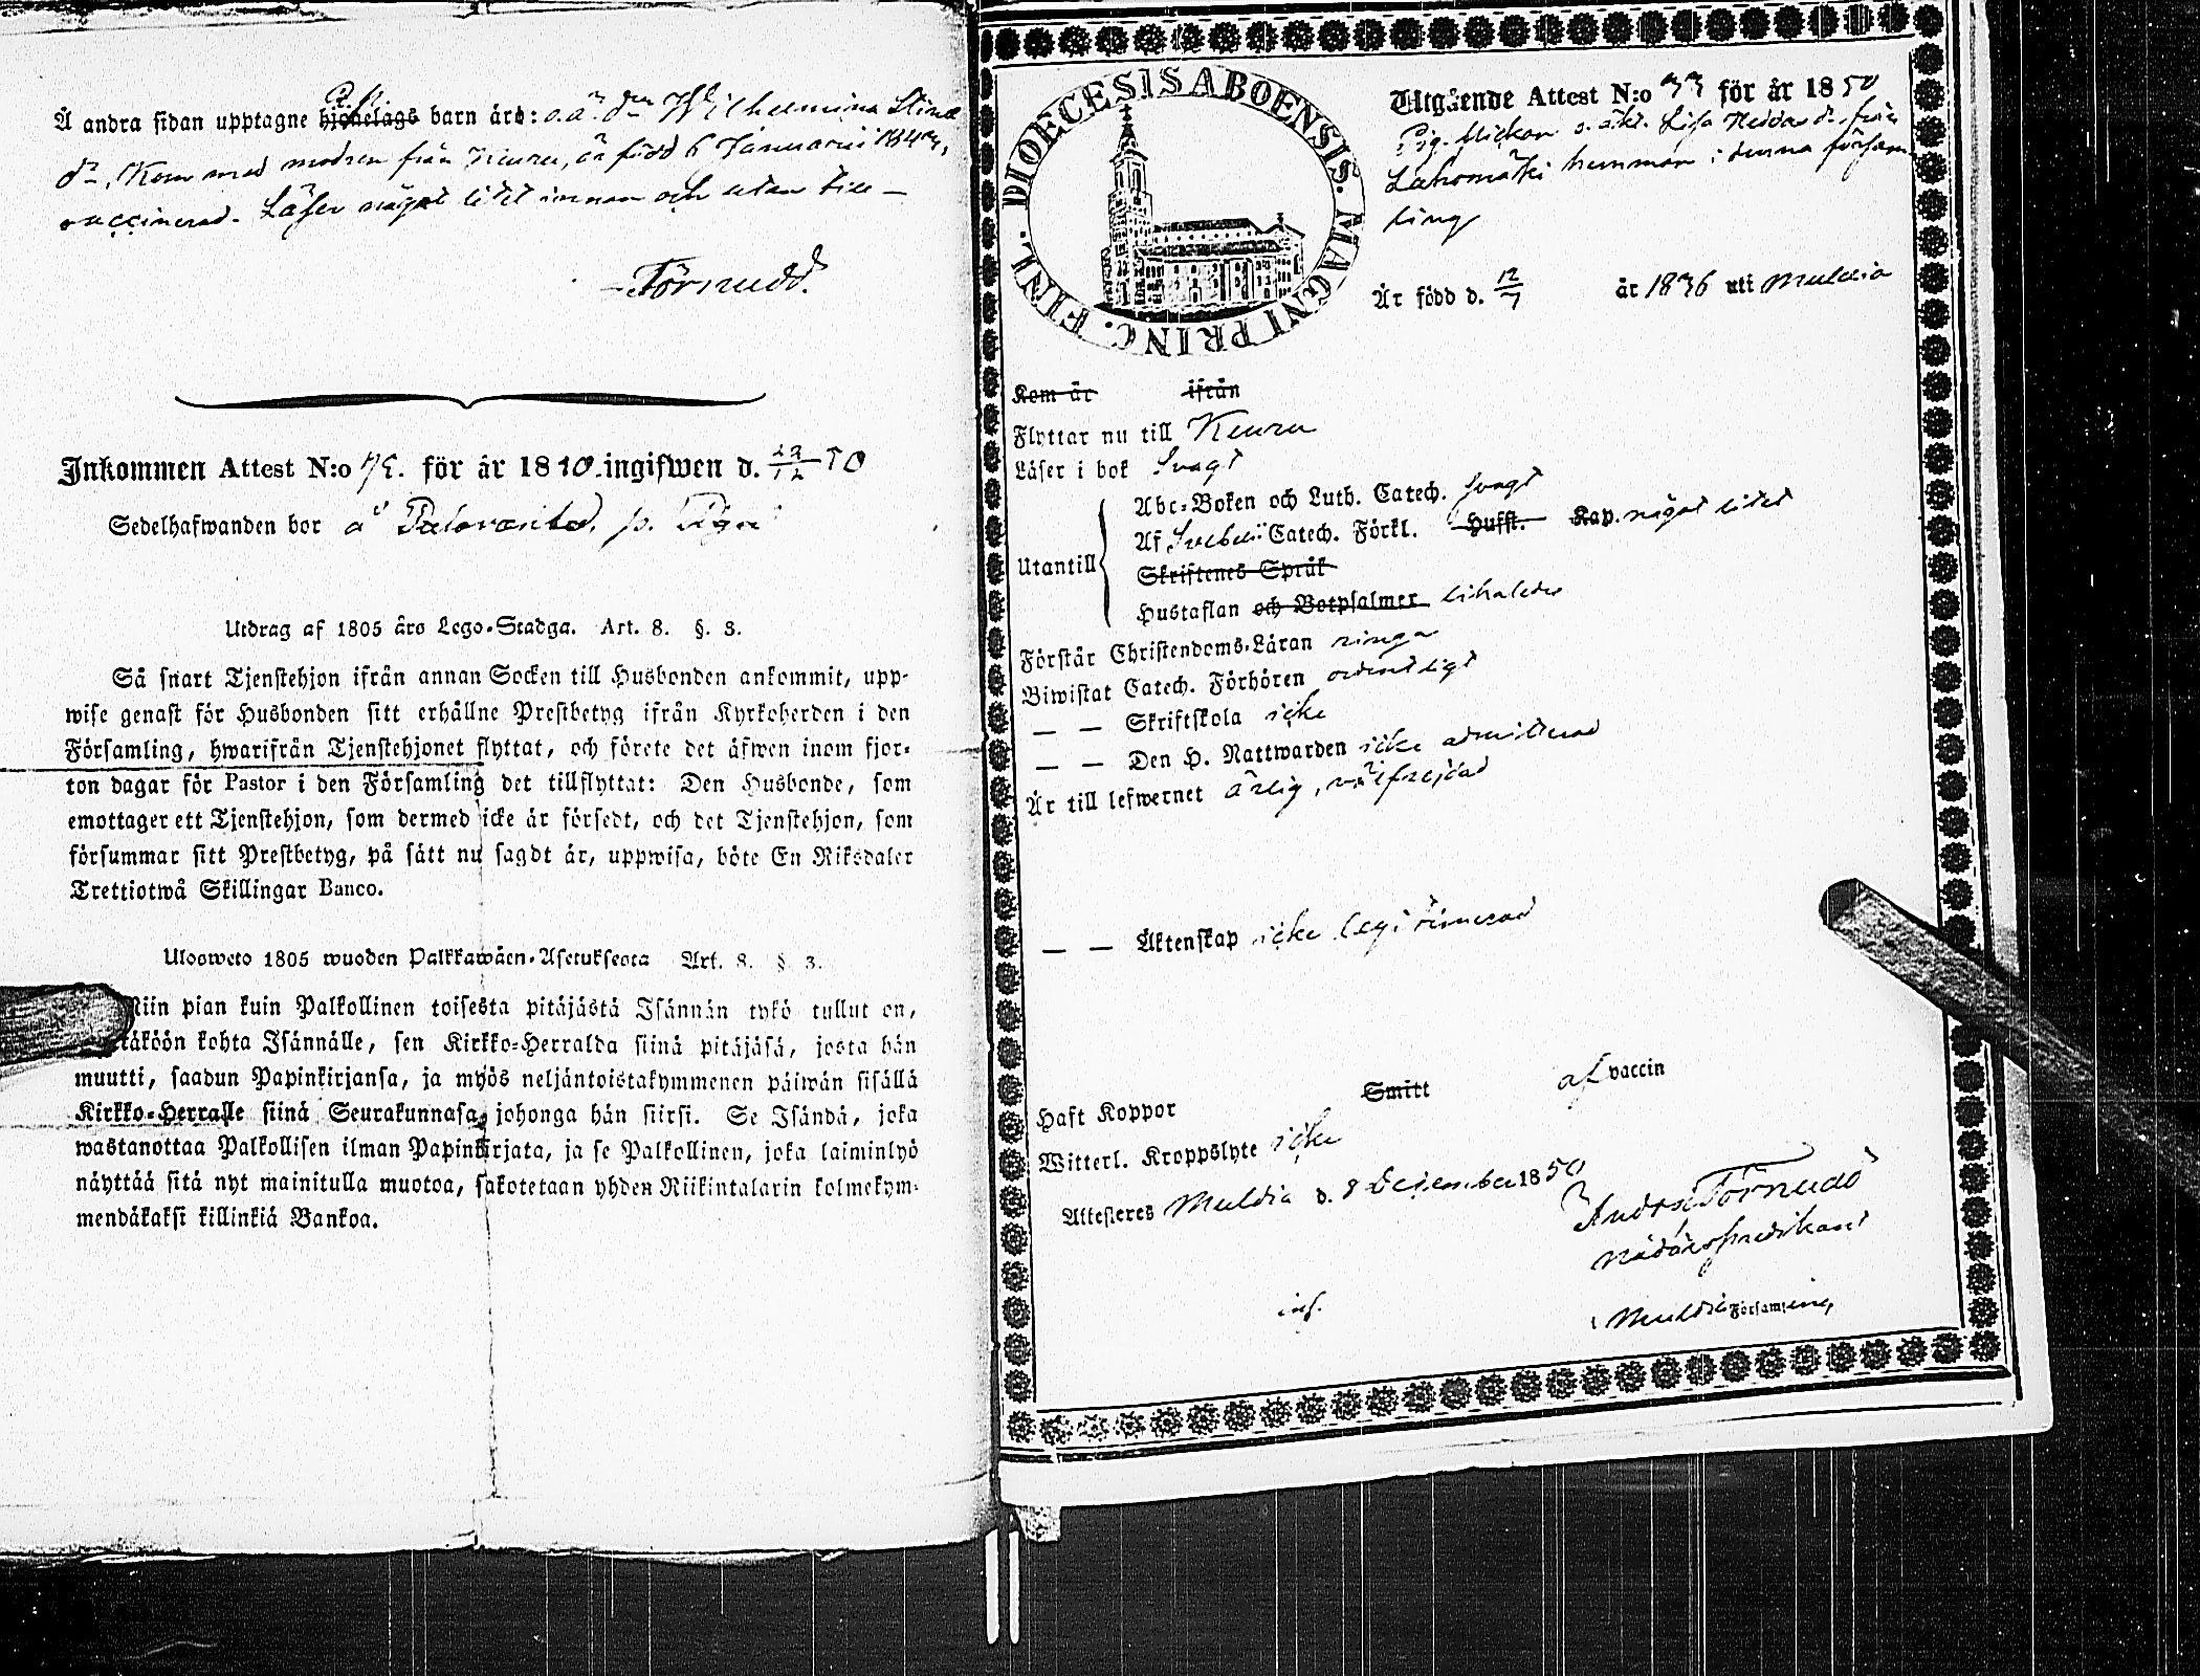 Å andra sidan upptagne hjonelags barn äro: o.ä. dr Wilhelmina Stina
dr, Kom med modren från Keuru, är född 6 Januarii 1843,
vaccinerad. Läser något litet innan och utan till —
Törnudd.
Inkommen Attest N:o för år 1810. ingifwen d. 50
Sedelhafwanden bor å p.
Utdrag af 1805 års Lego-Stadga. Art. 8. §. 3.
Så snart Tjenstehjon ifrån annan Socken till Husbonden ankommit, upp-
wise genast för Husbonden sitt erhållne Prestbetyg ifrån Kyrkoherden i den
Församling, hwarifrån Tjenstehjonet flyttat, och förete det äfwen inom fjor-
ton dagar för Pastor i den Församling det tillflyttat: Den Husbonde, som
emottager ett Tjenstehjon, som dermed icke är försedt, och det Tjenstehjon, som
försummar sitt Prestbetyg, på sätt nu sagdt är, uppwisa, böte En Riksdaler
Trettiotwå Skillingar Banco.
Ulosweto 1805 wuoden Palkkawäen-Asetuksesta Art. 8. § 3.
Niin pian kuin Palkollinen toisesta pitäjästä Isännän tykö tullut on,
täköön kohta Isännälle, sen Kirkko-Herralda siinä pitäjäsä, josta hän
muutti, saadun Papinkirjansa, ja myös neljäntoistakymmenen päiwän sisällä
Kirkko-Herralle siinä Seurakunnasa, johonga hän siirsi. Se Isändä, joka
wastanottaa Palkollisen ilman Papinkirjata, ja se Palkollinen, joka laiminlyö
näyttää sitä nyt mainitulla muotoa, sakotetaan yhden Riikintalarin kolmekym-
mendäkaksi killinkiä Bankoa.
DIOECESIS ABOENSIS. MAGNI PRINC. FINL.
Utgående Attest N:o 33 för år 1850
Pig. flickan o. äkt. Lisa Hedda dr från
hemman i denna försam-
ling
Är född d. 12/7 år 1836 uti Multia
Kom år ifrån
Flyttar nu till Keuru
Läser i bok svagt
Utantill
Abc-Boken och Luth. Catech. svagt
Af Svebelii Catech. Förkl. Hufst. Kap. något litet
Skriftenes Språk
Hustaflan och Botpsalmer likaledes
Förstår Christendoms-Läran ringa
Biwistat Catech. Förhören ordentligt
— — Skriftskola icke
— — Den H. Nattwarden icke admitterad
Är till lefwernet ärlig, välfrejdad
— — Äktenskap icke legitimerad
Haft Koppor Smitt af vaccin
Witterl. Kroppslyte icke
Attesteras Muldia d. 8 December 1850
Törnudd
nådårspredikant
i Multia Församling